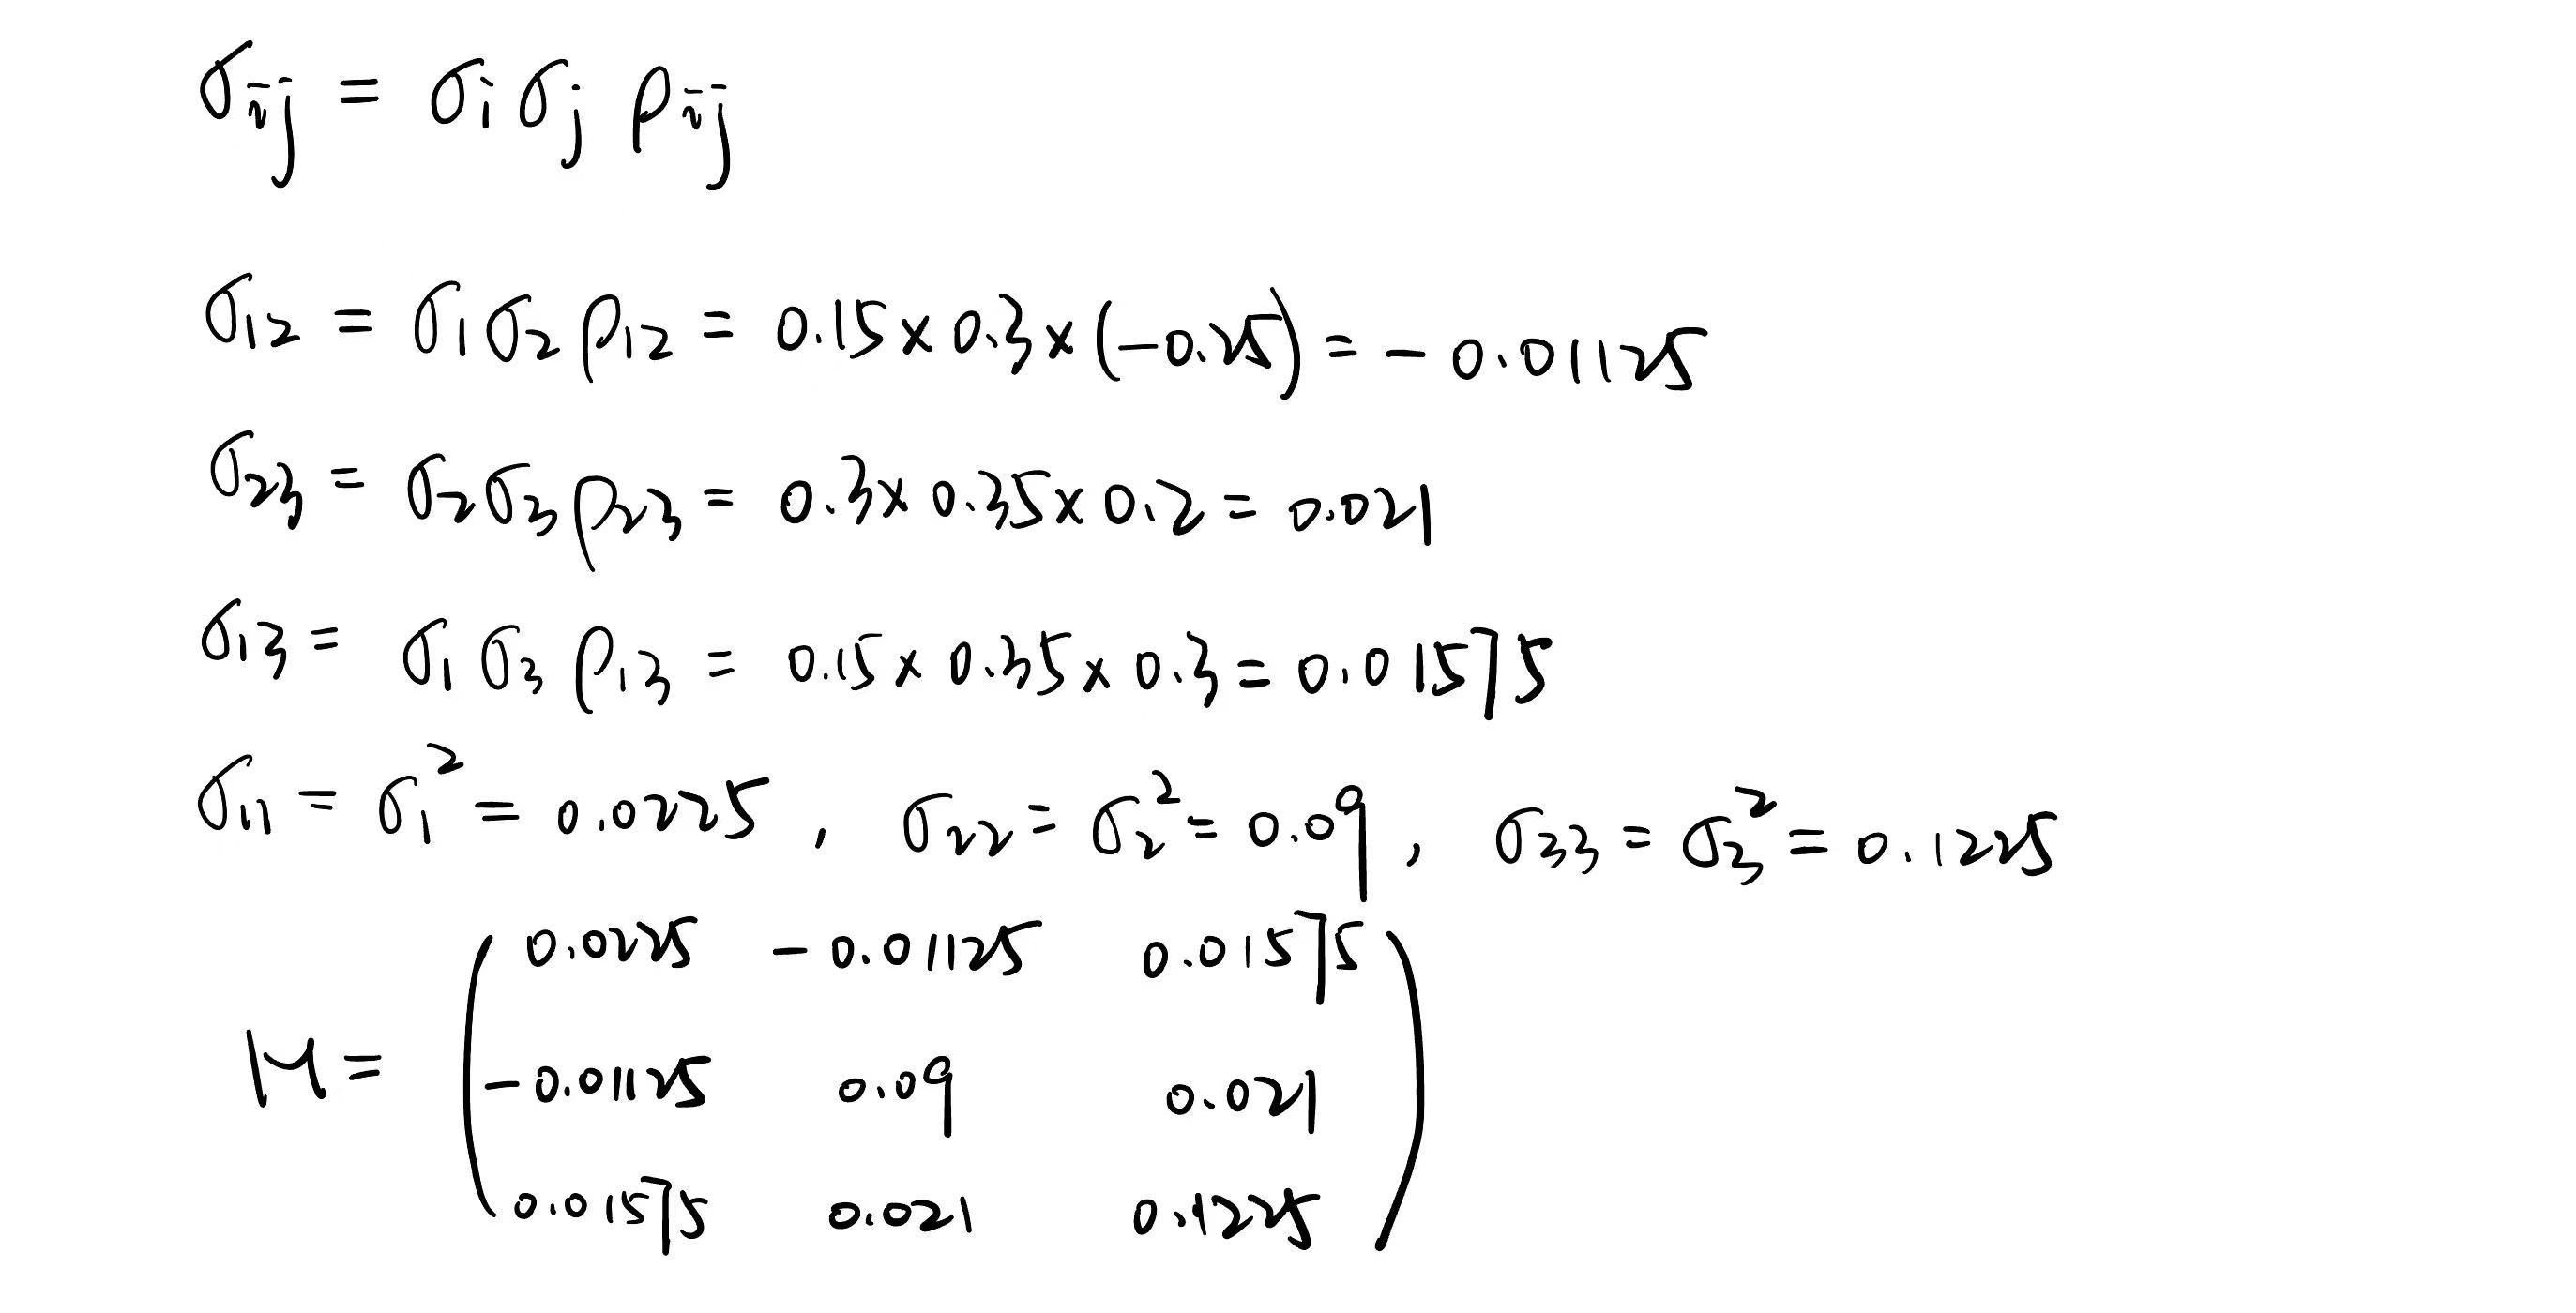 σij = σi σj ρij
σ12 = σ1 σ2 ρ12 = 0.15 × 0.3 × (-0.25) = - 0.01125
σ23 = σ2 σ3 ρ23 = 0.3 × 0.35 × 0.2 = 0.021
σ13 = σ1 σ3 ρ13 = 0.15 × 0.35 × 0.3 = 0.01575
σ11 = σ1² = 0.0225 , σ22 = σ2² = 0.09 , σ33 = σ3² = 0.1225
0.0225 - 0.01125 0.01575
M = - 0.01125 0.09 0.021
0.01575 0.021 0.1225